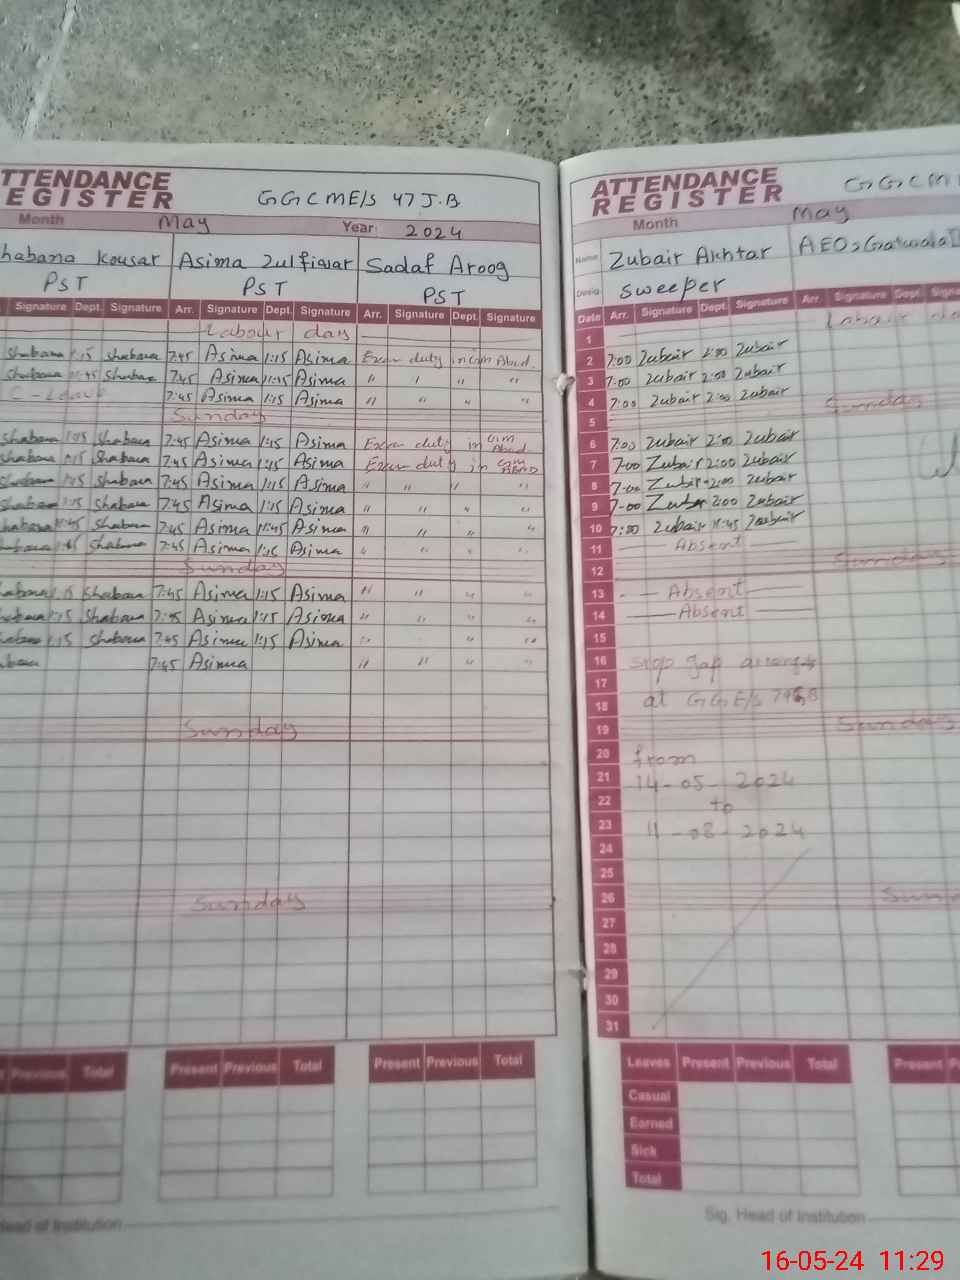 ATTENDANCE
REGISTER
GGCME/S 47 J.B
Month May Year: 2024
Shabana Kousar Asima Zulfiqar Sadaf Aroog
PST PST PST
Signature Dept. Signature Arr. Signature Dept. Signature Arr. Signature Dept. Signature
Labour day
Shabana 1:15 Shabana 7:45 Asima 1:15 Asima Exam duty in com Abad.
Shabana 11:45 Shabana 7:45 Asima 11:45 Asima " " " "
C-Leave 7:45 Asima 1:15 Asima " " " "
Sunday
Shabana 1:15 Shabana 7:45 Asima 1:15 Asima Exam duty in
Shabana 1:15 Shabana 7:45 Asima 1:15 Asima Exam duty in
Shabana 1:15 Shabana 7:45 Asima 1:15 Asima " " " "
Shabana 1:15 Shabana 7:45 Asima 1:15 Asima " " " "
Shabana 11:45 Shabana 7:45 Asima 11:45 Asima " " " "
Shabana 1:15 Shabana 7:45 Asima 1:15 Asima " " " "
Sunday
Shabana 1:15 Shabana 7:45 Asima 1:15 Asima " " " "
Shabana 1:15 Shabana 7:45 Asima 1:15 Asima " " " "
Shabana 1:15 Shabana 7:45 Asima 1:15 Asima " " " "
7:45 Asima " " " "
Sunday
Sunday
Previous Total Present Previous Total Present Previous Total
Head of Institution
ATTENDANCE
REGISTER
GGCM
Month May
Name Zubair Akhtar AEO
Desig. sweeper
Date Arr. Signature Dept. Signature Arr. Signature Dept.
1 Labour
2 7:00 Zubair 2:00 Zubair
3 7:00 Zubair 2:00 Zubair
4 7:00 Zubair 2:00 Zubair
5 Sunday
6 7:00 Zubair 2:00 Zubair
7 7:00 Zubair 2:00 Zubair
8 7-00 Zubair 2:00 Zubair
9 7-00 Zubair 2:00 Zubair
10 7:00 Zubair 11:45 Zubair
11 Absent
12 Sunday
13 Absent
14 Absent
15
16 stop gap
17
18 at GGE/S
19 Sunday
20 from
21 14-05-2024
22 to
23 11-08-2024
24
25
26
27
28
29
30
31
Leaves Present Previous Total Present
Casual
Earned
Sick
Total
Sig. Head of Institution
16-05-24 11:29